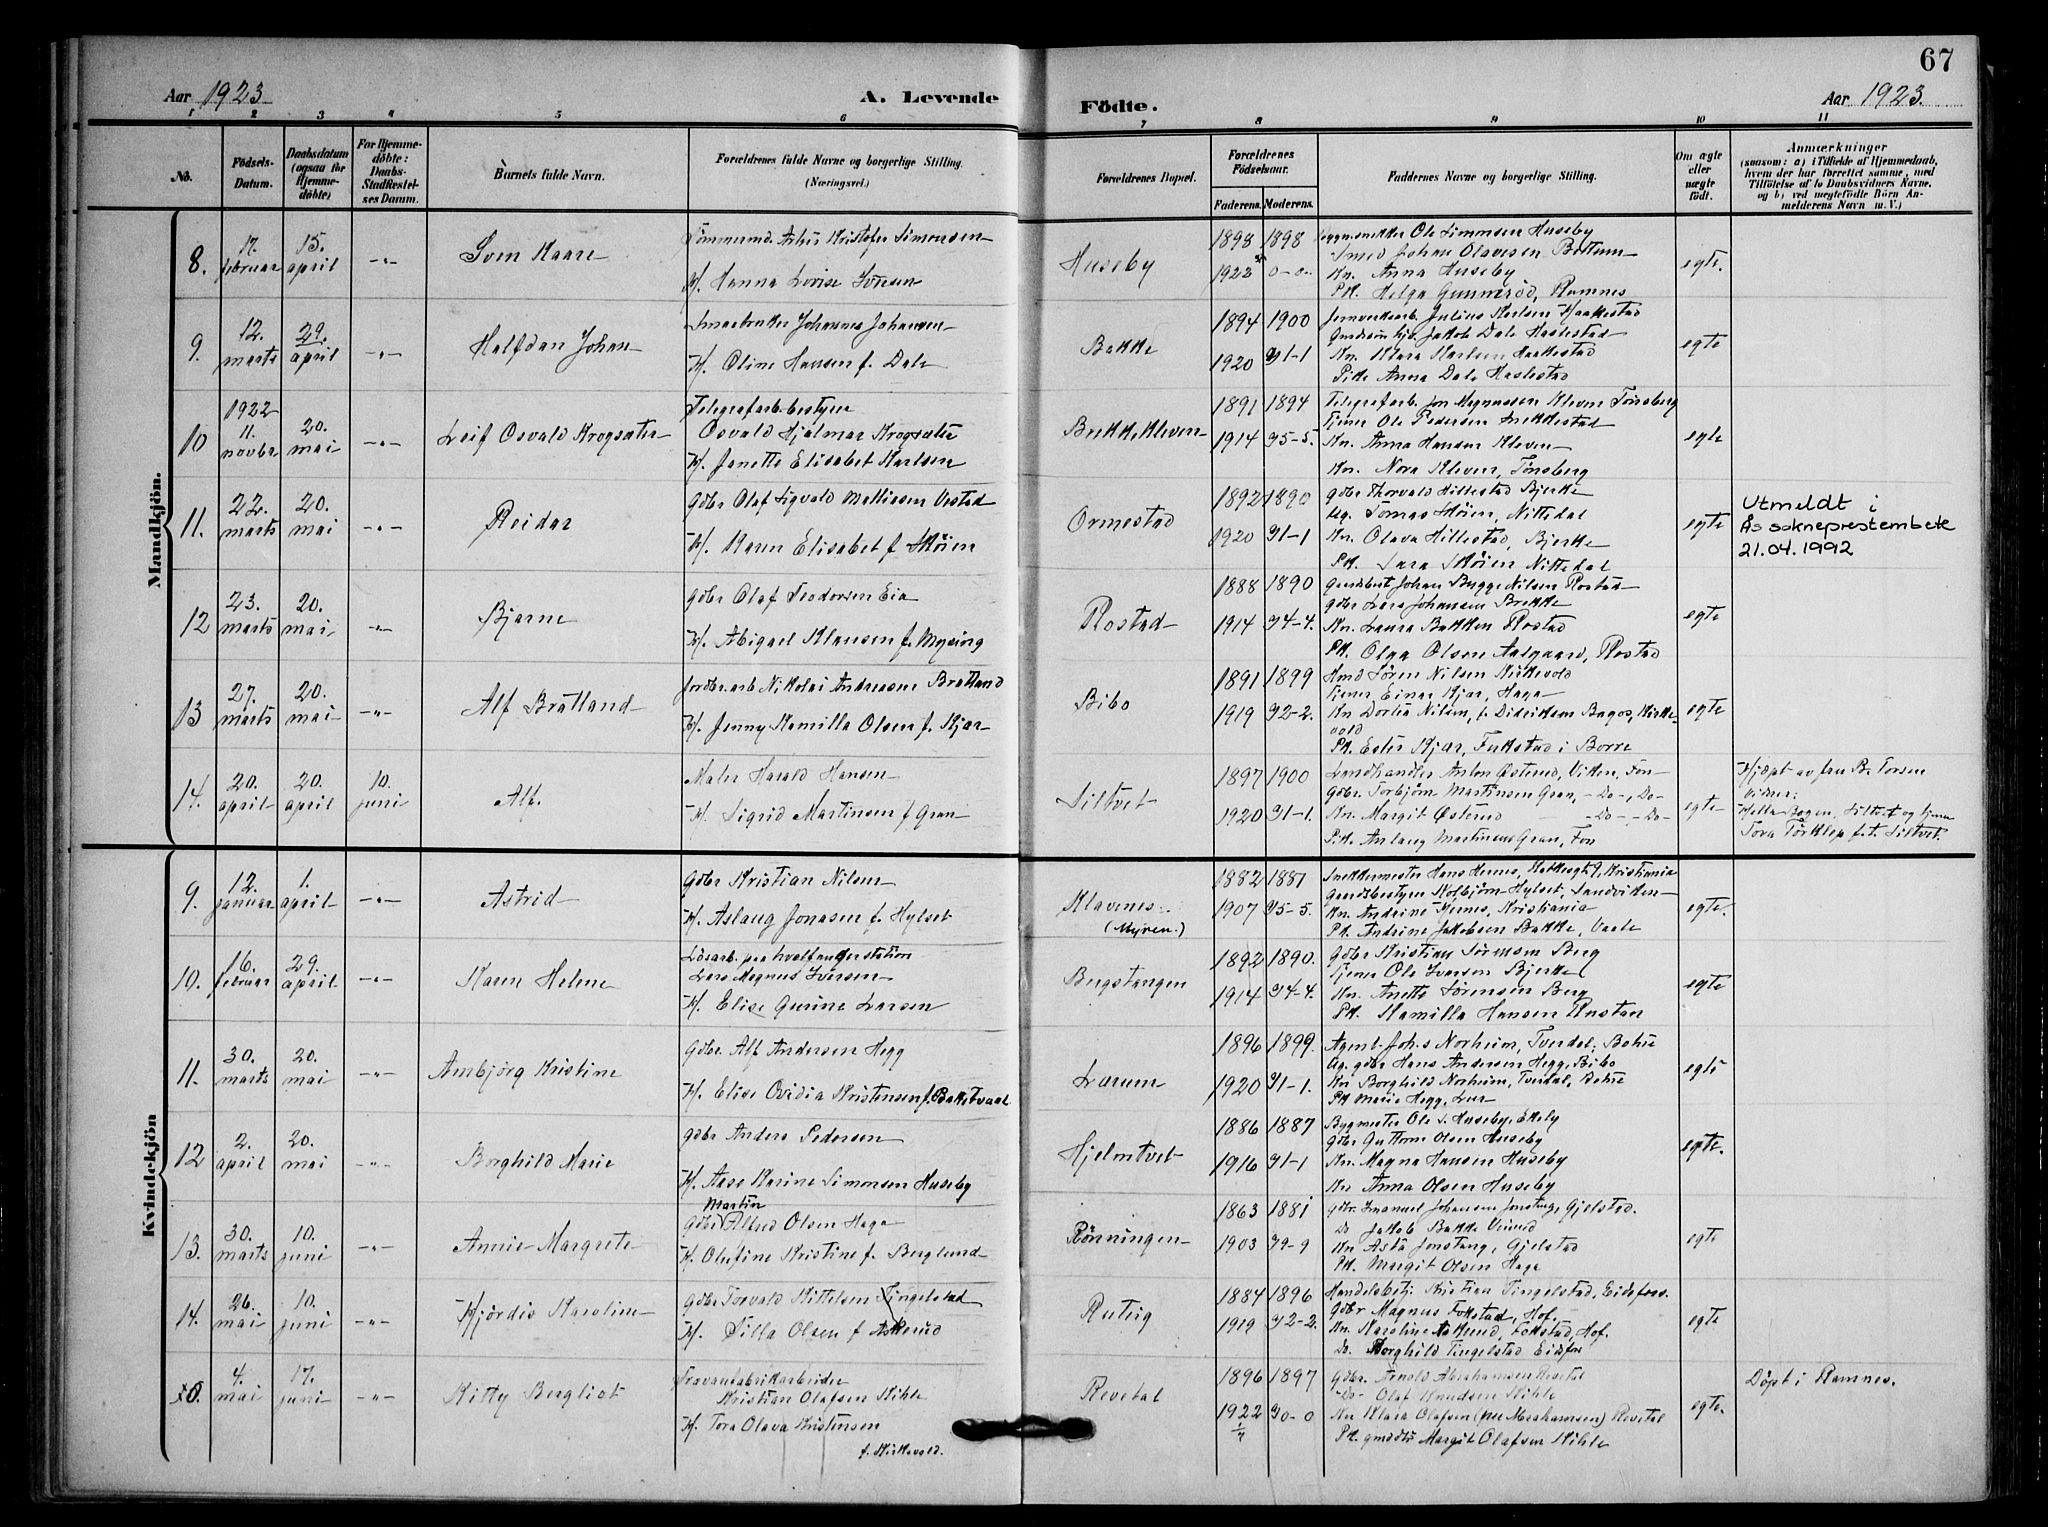 67
Aar 1923. A. Levende Födte. Aar 1923.
1 2 3 4 5 6 7 8 9 10 11
No.
Födsels-Datum.
Daabsdatum (ogsaa for Hjemme-döbte)
For Hjemme-döbte: Daabs-Stadfæstel-ses Datum.
Barnets fulde Navn.
Forældrenes fulde Navne og borgerlige Stilling. (Næringsvei.)
Forældrenes Bopæl.
Forældrenes Födselsaar.
Faderens. Moderens.
Faddernes Navne og borgerlige Stilling.
Om ægte eller uægte født.
Anmærkninger
(saasom: a) i Tilfælde af Hjemmedaab,
hvem der har forrettet samme, med
Tilföielse af to Daabsvidners Navne,
og b) ved uegtefödte Börn An-
melderens Navn m. V.)
Mandkjön.
8. 17. februar 15. april -"- Sven Kaare
Tömmermd. Asbjs Kristofer Simonsen
H. Hanna Lovise Jonsen
Huseby
1898 1898
1922 0-0.
Bygm.snekker Ole Simmsen Huseby
Smed Johan Olavesen Bettum
Kn. Anna Huseby
Pk. Helga Gunneröd, Ramnes
egte.
9. 12. marts 29. april -"- Halfdan Johan
Smaabruker Johannes Johansen
H. Oline Hansen f. Dale
Bakke
1894 1900
1920 31-1
Jernverksarb. Julius Karlsen Haakestad
Gaardsarb. Jakob Dale Haslestad
Kn. Klara Karlsen Haakestad
Pike Anna Dale Haslestad
egte
10 1922 11. novbr 20. mai -"- Leif Osvald Krogsæter
Telegrafarb.bestyrer
Osvald Hjalmar Krogsæter
H. Janette Elisabet Karlsen
Brekke Kleven
1891 1894
1914 35-5.
Telegrafarb. Jon Magnussen Kleven Tönsberg
Tjener Ole Pedersen Snekkestad
Kn. Anna Hansen Kleven
Kn. Nora Kleven, Tönsberg
egte
11. 22. marts 20. mai -"- Reidar
Gdbr Olaf Sigvald Mathiasen Vestad
H. Karen Elisabet f. Skoien
Ormestad
1892 1890
1920 31-1
Gdbr Thorvald Hillestad Bjerke
Ug. Tomas Skoien, Nittedal
Kn. Olava Hillestad, Bjerke
Pk. Sara Skoien Nittedal
egte
Utmeldt i
Ås sokneprestembete
21.04.1992
12 23. marts 20. mai -"- Bjarne
Gdbr Olaf Teodorsen Eia
H. Abigael Klausen f. Myreng
Rostad
1888 1890
1914 34-4.
Gaardsbest. Johan Bugge Nilsen Rostad
Gdbr Lars Johansen Brekke
Kn. Laura Bakken Rostad
Pk. Olga Olsen Aalgaard, Rostad
egte
13 27. marts 20. mai -"- Alf Bratland
Jordbr.arb Nikolai Andreasen Bratland
H. Jenny Kamilla Olsen f. Kjær
Bibo
1891 1899
1919 32-2.
Hmd Sören Nilsen Kirkevold
Tjener Einar Kjær, Haga
Kn Dortea Nilsen, f. Didriksen Bugos, Kirke-
vold
Pk. Ester Kjær, Fukstad i Borre
egte
14. 20. april 20. april 10. juni Alf.
Maler Harald Hansen
H. Sigrid Martinsen f Gran
Siltvet
1897 1900
1920 31-1.
Landhandler Anton Österud, Vikken, Fon
Gdbr. Torbjörn Martinsen Gran, -Do-, -Do-
Kn. Margit Österud -Do-, -Do-
Pik. Aslaug Martinsen Gran, Fon
egte
Hjdöpt av fru B. Torsen
Vidner:
Hella Bogen, Siltvet og tjener
Tora Törklep f.t. Siltvet.
Kvindekjön
9. 12. januar 1. april -"- Astrid
Gdbr Kristian Nilsen
H. Aslaug Jonasen f. Hylset
Klavenes
(Myren.)
1882 1881
1907 35-5.
Snekkermester Hans Hernes, Kristiania
Gaardsbestyrer Kolbjörn Hylset, Sandviken
Kn. Andrine Hernes, Kristiania
Pk. Andrine Jakobsen Bakke, Vaale
egte.
10. 16. februar 29. april -"- Karen Helene
Lösarb. paa hvalfangerstation
Lars Magnus Iversen
H. Elise Gurine Larsen
Bergstangen
1892 1890.
1914 34-4.
Gdbr Kristian Sörensen Berg
Tjener Ole Iversen Bjerke
Kn. Anette Sörensen Berg
Pk. Kamilla Hansen Rustan
egte
11. 30. marts 20. mai -"- Ambjörg Kristine
Gdbr. Alf Andersen Hegg
H. Elise Ovidia Kristensen f. Bakketvaal
Larum
1896 1899.
1920 31-1.
Agent Johs Norheim, Tverdal, Botne
Ug. gdbr Hans Andersen Hegg, Bibo
Kn Borghild Norheim, Tverdal, Botne
Pk Marie Hegg, Lur
egte
12 2. april 20. mai -"- Borghild Marie
Gdbr Anders Pedersen
H. Aase Karine Simonsen Huseby
Hjelmtvet
1886 1887
1916 31-1
Bygmester Ole S. Huseby, Ekely
Gdbr Guttorm Olsen Huseby
Kn. Magna Hansen Huseby
Kn Anna Olsen Huseby
egte.
13. 30. marts 10. juni -"- Annie Margrete
Martin
Gdbr Alfred Olsen Haga
H. Olufine Kristine f. Berglund
Rönningen
1863 1881
1903 39-9
Gdbr. Emanuel Johansen Jonstang, Gjelstad.
Do Jakob Bakke Veierud
Kn Asta Jonstang, Gjelstad
Pk. Margit Olsen Haga
egte
14. 26. mai 10. juni -"- Hjördis Karoline
Gdbr Torvald Kittelsen Tingelstad
H. Silla Olsen f Askerud
Rutig
1884 1896
1919 32-2.
Handelsbetj. Kristian Tingelstad, Eidsfoss.
Gdbr Magnus Fokstad, Hof.
Kn. Karoline Askerud, Fokstad, Hof.
Do. Borghild Tingelstad Eidsfos
egte
4. mai 17. juni -"- Kitty Bergliot
Travarefabrikarbeider
Kristian Olafsen Kihle
H. Tora Olava Kristensen
f. Kirkevold.
Revetal
1896 1897
1922 30-0
1/7
Gdbr. Arnold Abrahamsen Revetal
-Do- Olaf Knudsen Kihle
Kn Klara Olafsen (née Abrahamsen) Revetal
Pk. Margit Olafsen Kihle
egte.
Döpt i Ramnes.